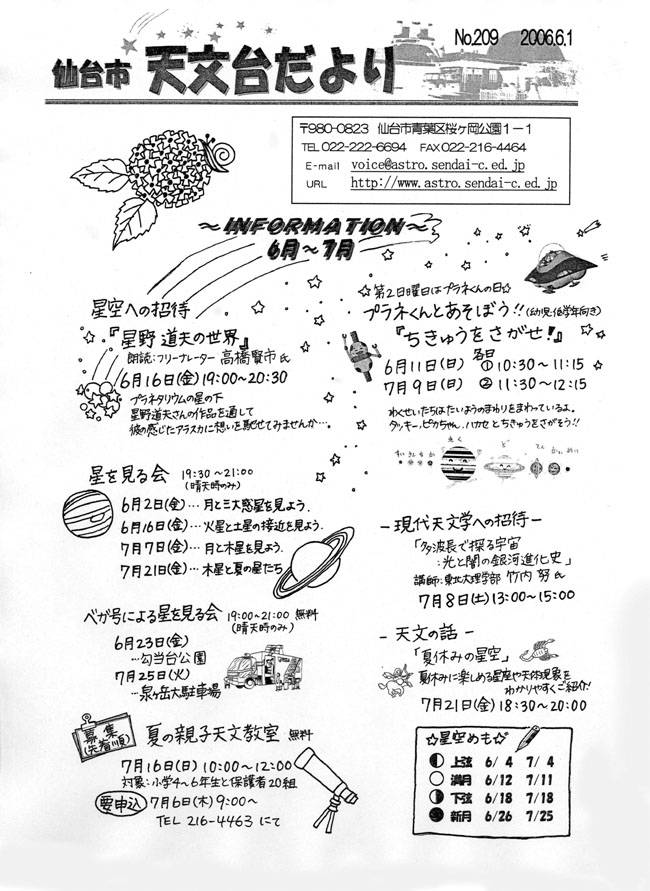 No.209 2006.6.1
仙台市 天文台だより
〒980-0823 仙台市青葉区桜ヶ岡公園1-1
TEL 022-222-6694 FAX 022-216-4464
E-mail voice@astro.sendai-c.ed.jp
URL http://www.astro.sendai-c.ed.jp
～INFORMATION～
6月～7月
星空への招待
『星野 道夫の世界』
朗読:フリーナレーター 高橋賢市氏
6月16日(金) 19:00～20:30
プラネタリウムの星の下
星野道夫さんの作品を通して
彼の感じたアラスカに想いを馳せてみませんか…。
☆第2日曜日はプラネくんの日☆
プラネくんとあそぼう!!(幼児・低学年向き)
『ちきゅうをさがせ!』
各日
6月11日(日) ①10:30～11:15
7月9日(日) ②11:30～12:15
わくせいたちはたいようのまわりをまわっているよ。
タッキー、ピカちゃん、ハカセとちきゅうをさがそう!!
星を見る会 19:30～21:00
(晴天時のみ)
6月2日(金)…月と三大惑星を見よう.
6月16日(金)…火星と土星の接近を見よう.
7月7日(金)…月と木星を見よう.
7月21日(金)…木星と夏の星たち
ベガ号による星を見る会 19:00～21:00 無料
(晴天時のみ)
6月23日(金)
…勾当台公園
7月25日(火)
…泉ヶ岳大駐車場
募集
(先着順)
夏の親子天文教室 無料
7月16日(日) 10:00～12:00
対象:小学4～6年生と保護者20組
要申込 7月6日(木) 9:00～
TEL 216-4463 にて
-現代天文学への招待-
「多波長で探る宇宙
:光と闇の銀河進化史」
講師:東北大理学部 竹内 努氏
7月8日(土) 13:00～15:00
-天文の話-
「夏休みの星空」
夏休みに楽しめる星座や天体現象を
わかりやすくご紹介!
7月21日(金) 18:30～20:00
☆星空めも☆
上弦 6/4 7/4
満月 6/12 7/11
下弦 6/18 7/18
新月 6/26 7/25